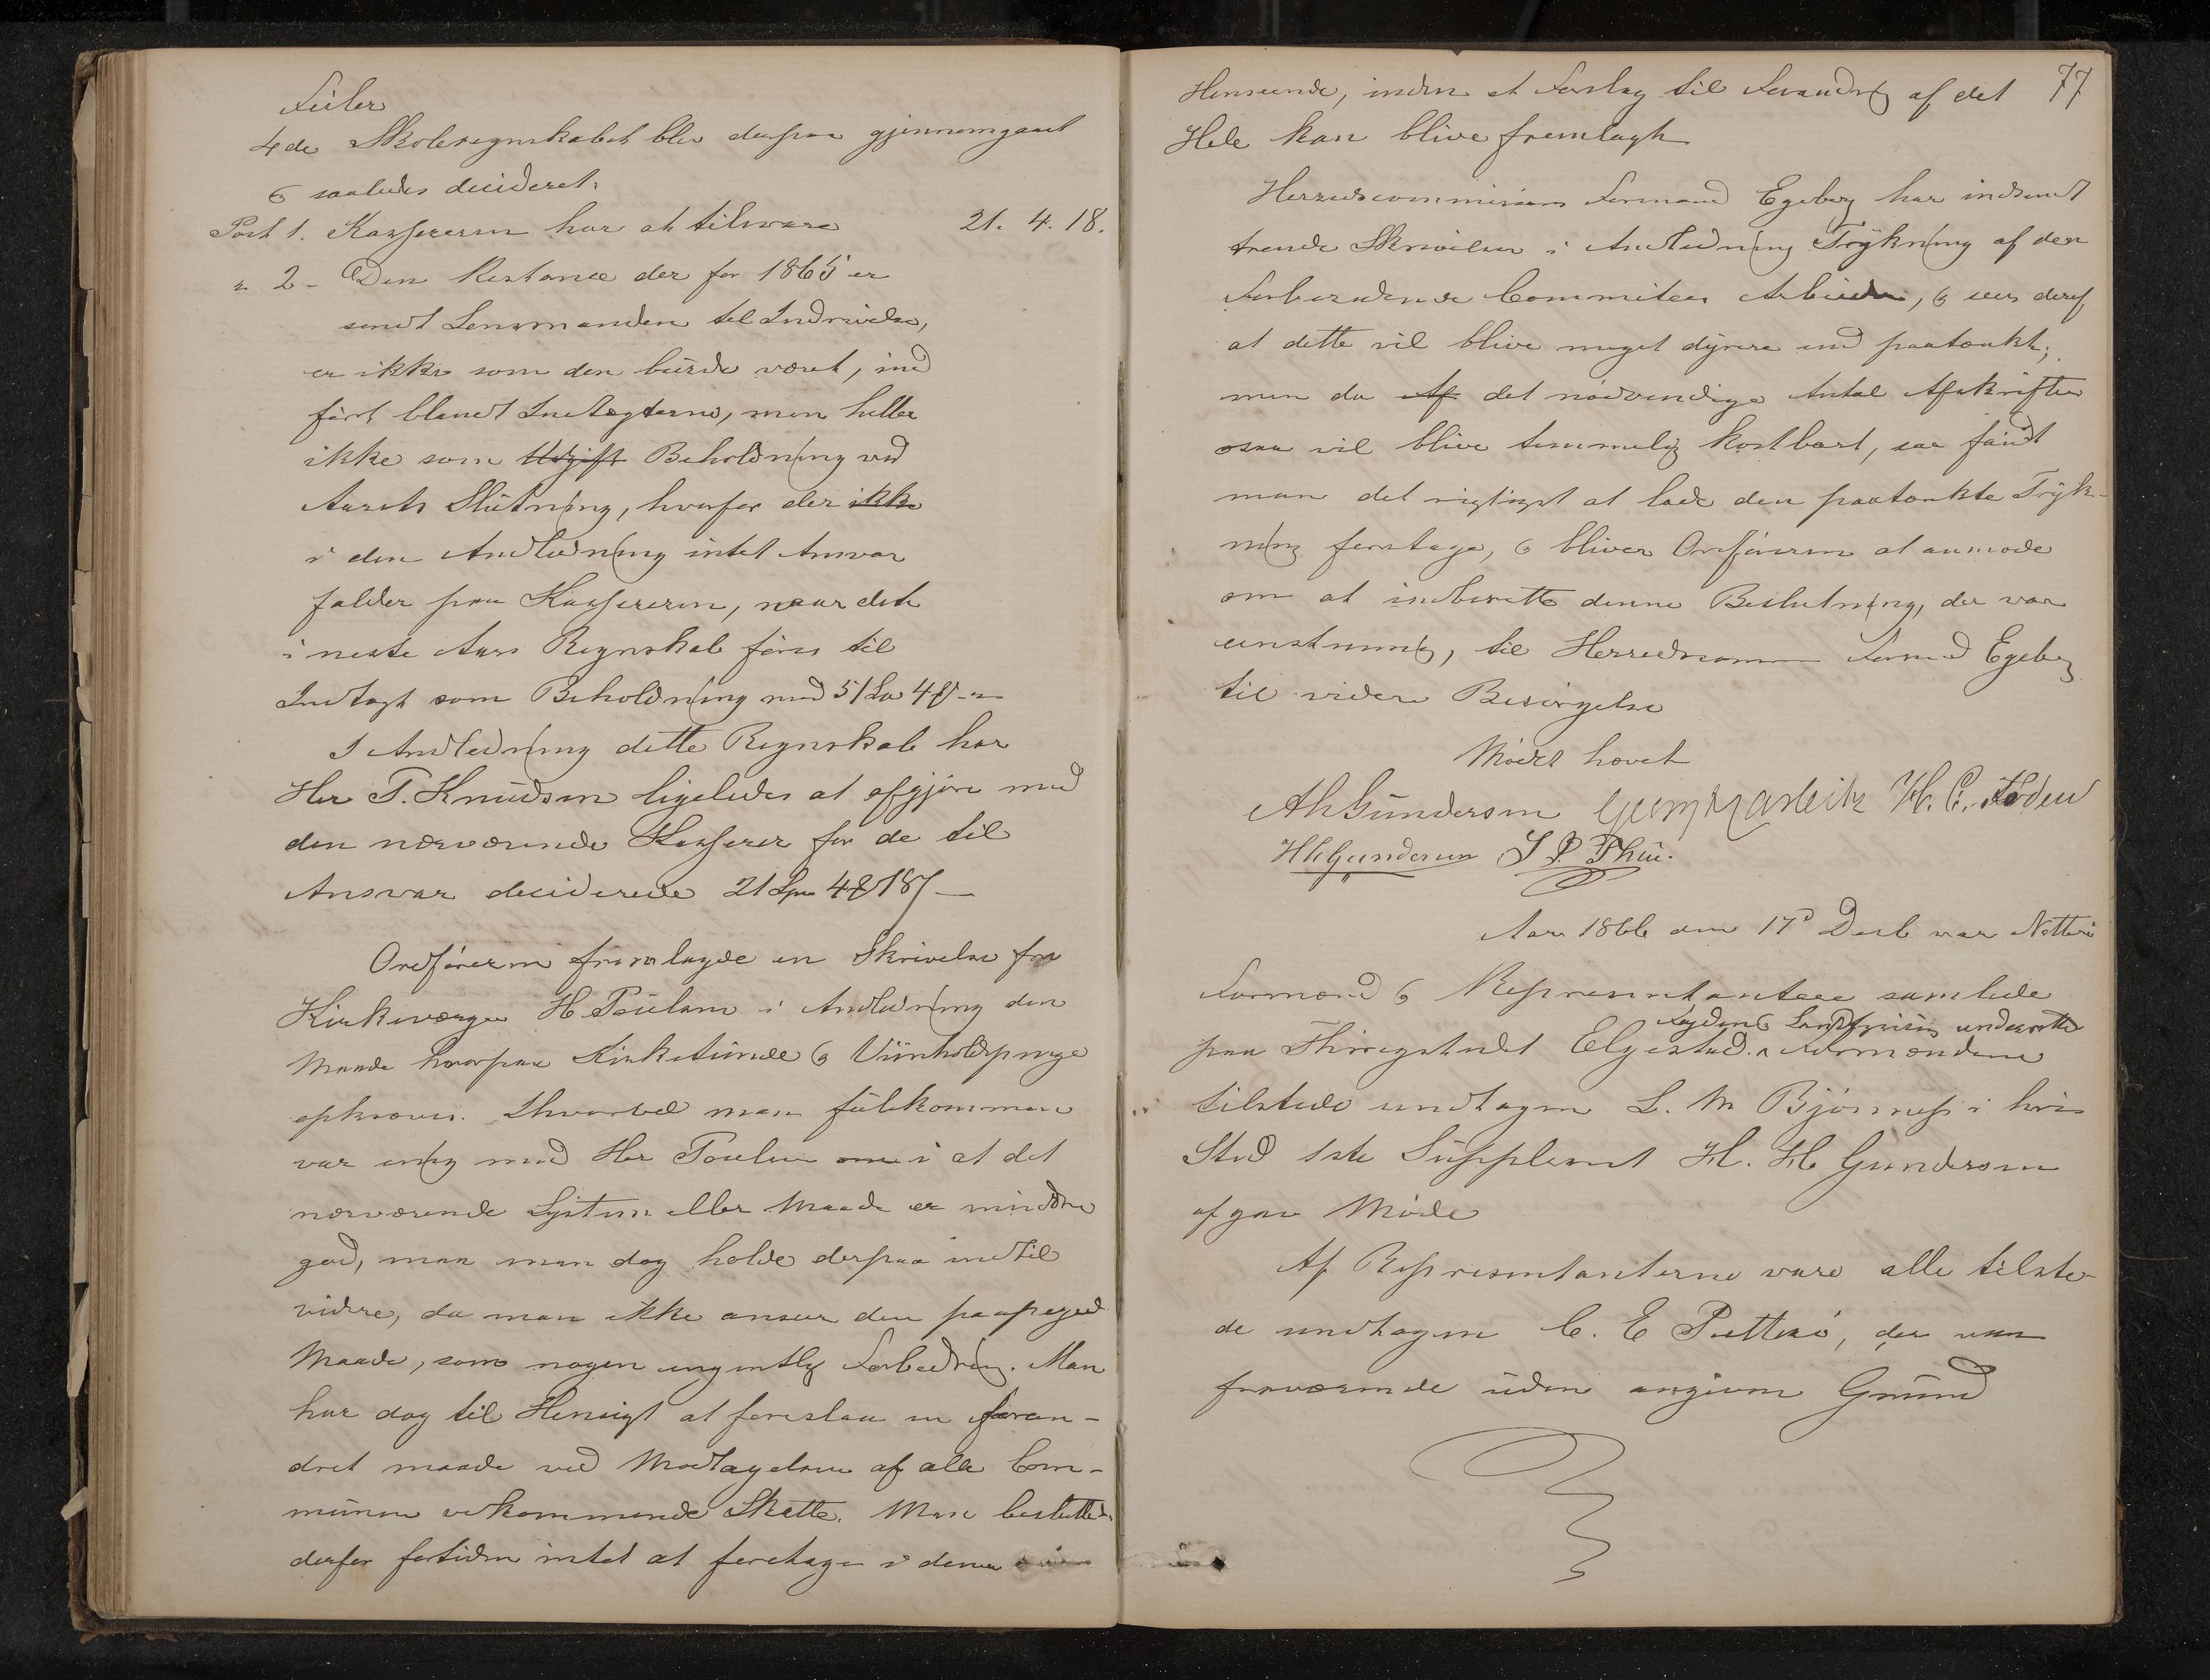 Feiler
4de Skoleregnskabet blev derpaa gjennemgaaet
& saaledes decideret:
Post 1. Kassereren har at tilsvare 21. 4. 18.
" 2 - Den Restance der for 1865 er
sendt Lensmanden til Inddrivelse,
er ikke som den burde været, ind
ført blandt Indtægterne, men heller
ikke som Udgift Beholdning ved
Aarets Slutning, hvorfor der ikke
i den Anledning intet Ansvar
falder paa Kassereren, naar dette
i neste Aars Regnskab føres til
Indtægt som Beholdning med 51 4
I Anledning dette Regnskab har
Herr T. Knudsen ligeledes at afgjøre med
den nærværende Kasserer for de til
Ansvar deciderede 21 Spd 4 18
Ordføreren fremlagde en Skrivelse fra
Kirkeværge H. Poulsen i Anledning den
Maade hvorpaa Kirketiende & penge
opkræves. Ihvorvel man fuldkommen
var enig med Herr Poulsen i at det
nærværende System eller Maade er mindre
god, maa man dog holde derpaa indtil
videre, da man ikke anseer den paapegede
Maade, som nogen egentlig Forbedring. Man
har dog til Hensigt at foreslaa en foran-
dret maade ved Modtagelsen af alle Com-
munen vedkommende Skatte. Man besluttede
derfor fortiden intet at foretage i denne
Henseende, inden et Forslag til Forandring af det 77
Hele kan blive fremlagt
Herredscommissions Formand Egeberg har indsendt
trende Skrivelser i Anledning Trykning af den
Forberedende Committees Arbeide, & sees deraf
at dette vil blive meget dyrere end paatænkt;
men da Af det nødvendige Antal Afskrifter
osaa vil blive temmelig kostbart, saa fandt
man det rigtigst at lade den paatænkte Tryk-
ning foretage, & bliver Ordføreren at anmode
om at indberette denne Beslutning, der var
eenstemmig, til Herredscomm Formand Egeberg
til videre Besørgelse
Mødet hævet
A H Gundersen H. C. Foden
H H Gundersen
Aar 1866 den 17de Decb var Nøtterø
Formænd & Repræsentantere samlede
paa Thingstedet Elgestad. Formændene
tilstede undtagen L. M Bjørnness i hvis
Sted 1ste Suppleant H. H. Gundersen
afgav Møde
Af Repræsentanterne vare alle tilste-
de undtagen C. E , der var
fraværende uden angiven Grund